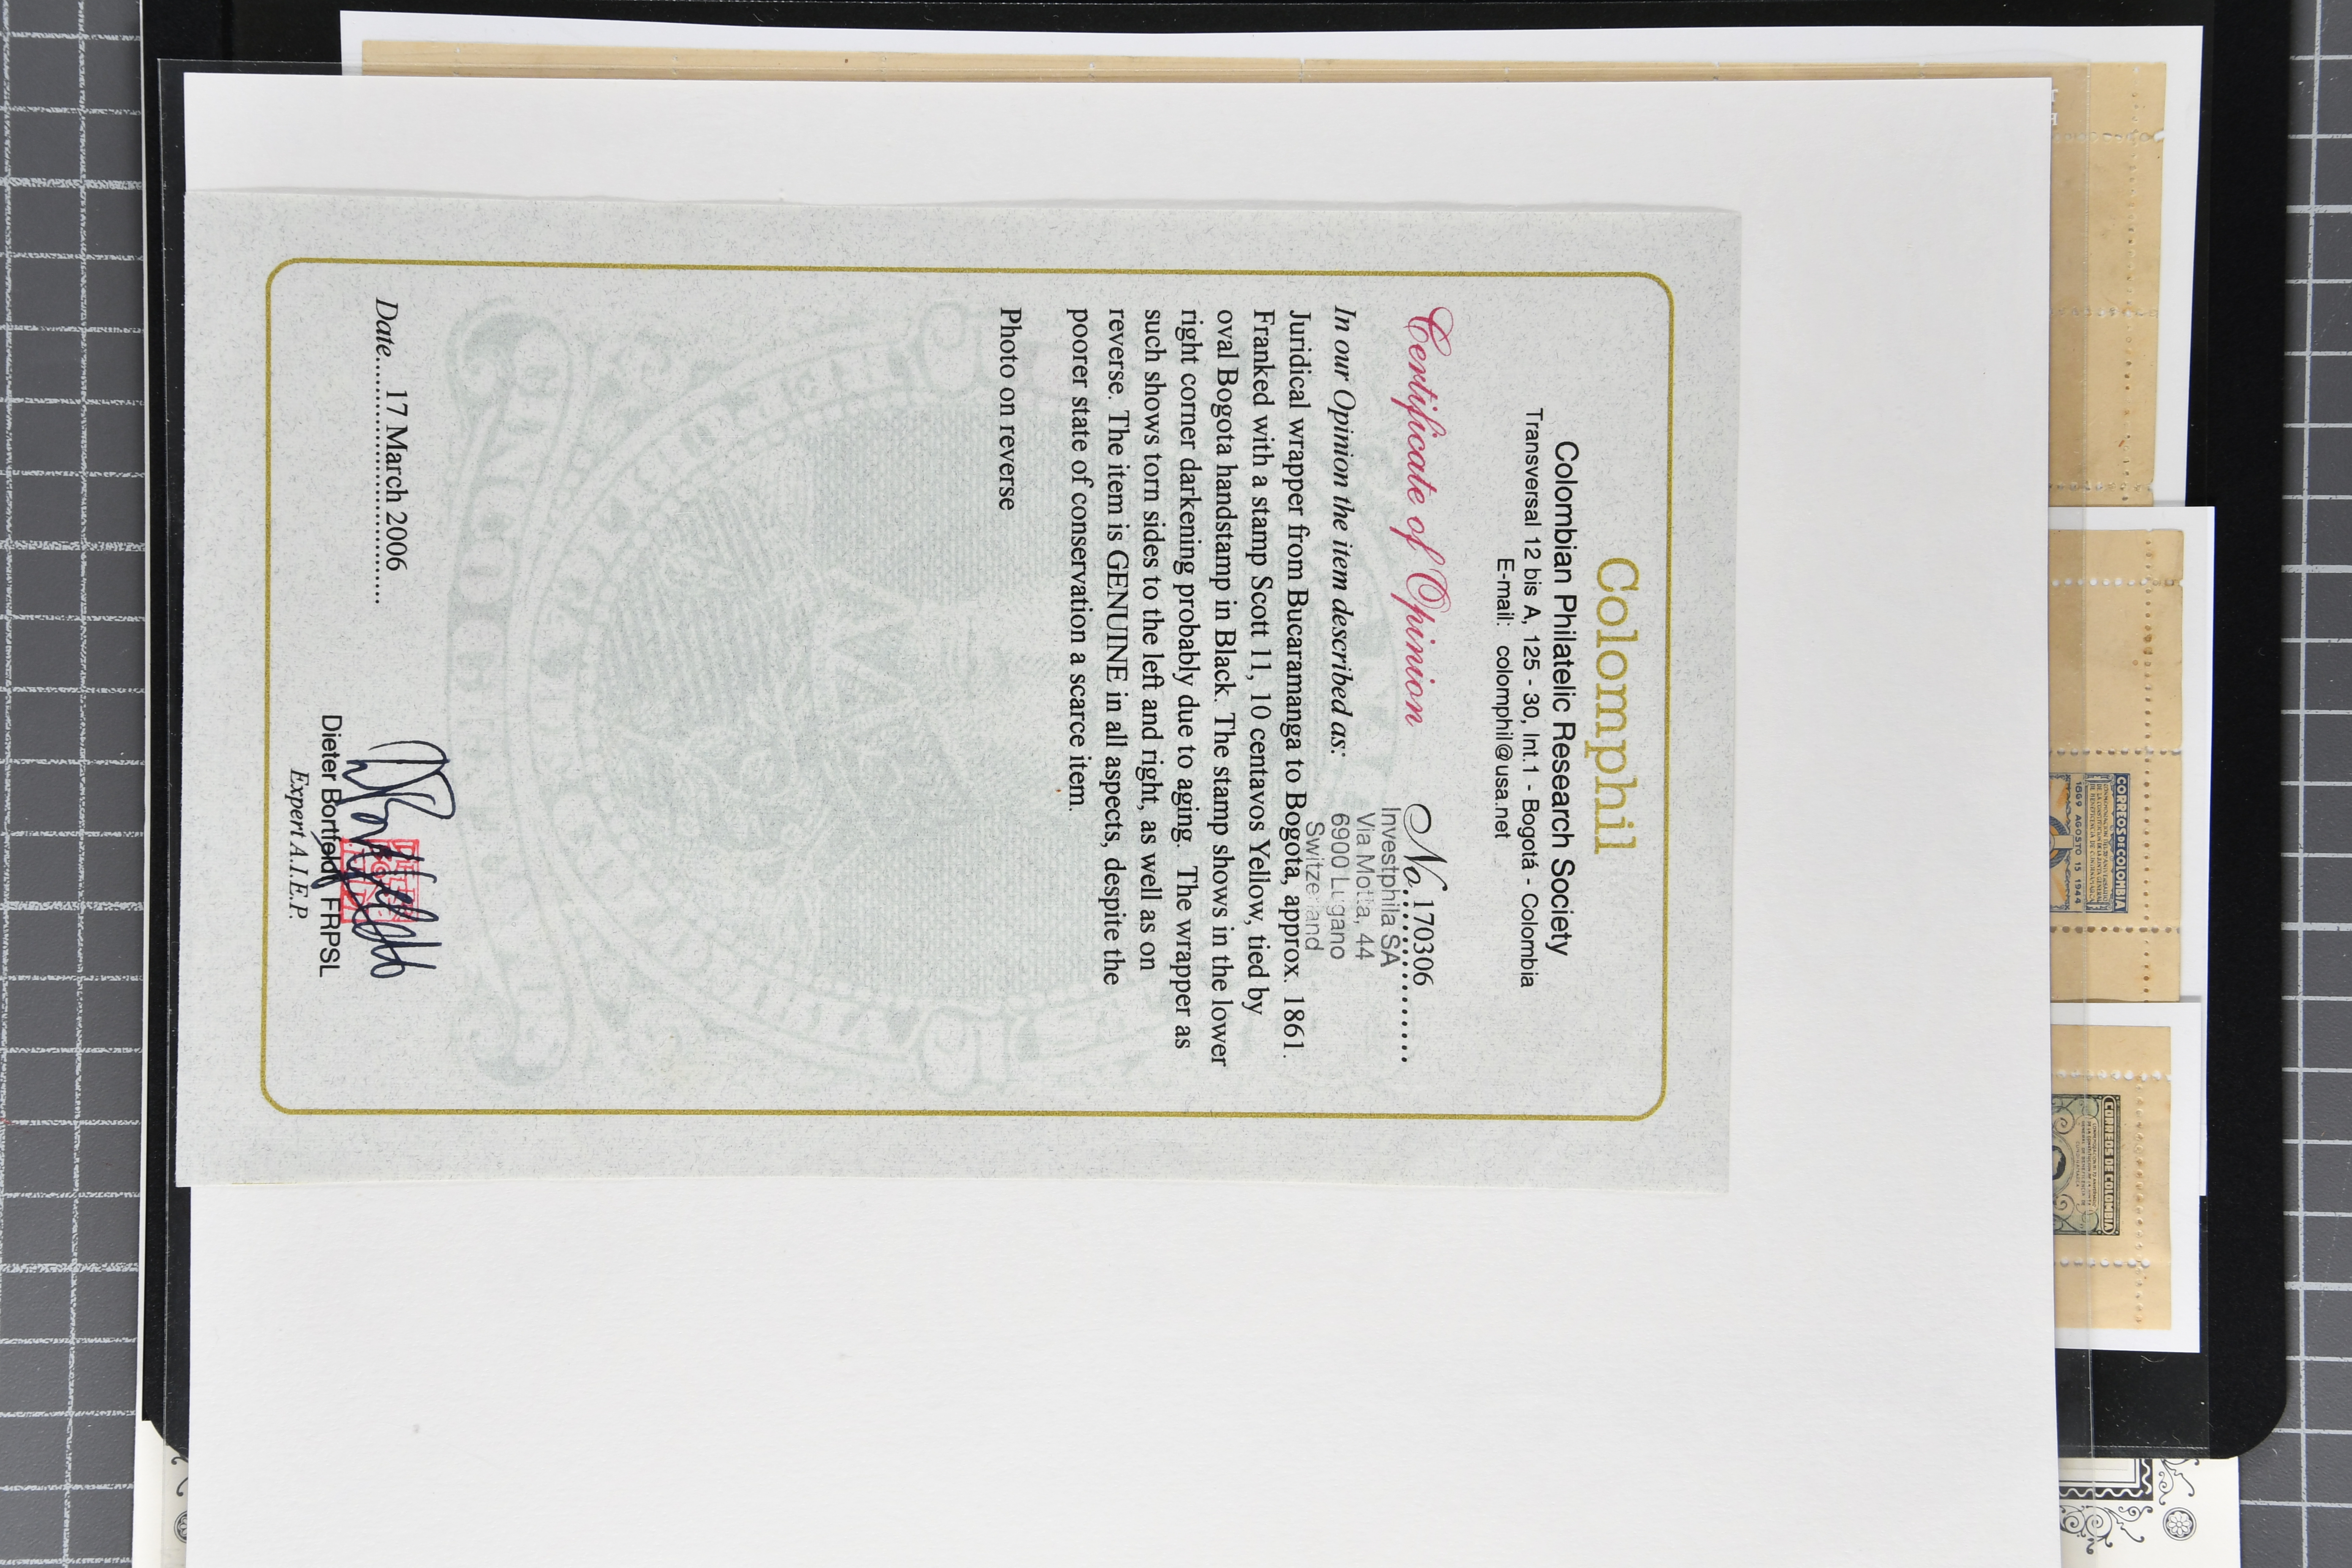 Colomphil
Colombian Philatelic Research Society
Transversal 12 bis A, 125 - 30, Int.1 - Bogotá - Colombia
E-mail: colomphil@usa.net
Certificate of Opinion
No. 170306
Investphila SA
Via Motta, 44
6900 Lugano
Switzerland
In our Opinion the item described as:
Juridical wrapper from Bucaramanga to Bogota, approx. 1861.
Franked with a stamp Scott 11, 10 centavos Yellow, tied by
oval Bogota handstamp in Black. The stamp shows in the lower
right corner darkening probably due to aging. The wrapper as
such shows torn sides to the left and right, as well as on
reverse. The item is GENUINE in all aspects, despite the
poorer state of conservation a scarce item.
Photo on reverse
Date.....17 March 2006
Dieter Bortfeldt FRPSL
Expert A.I.E.P.
CORREOS DE COLOMBIA
1869 AGOSTO 15 1944
CORREOS DE COLOMBIA